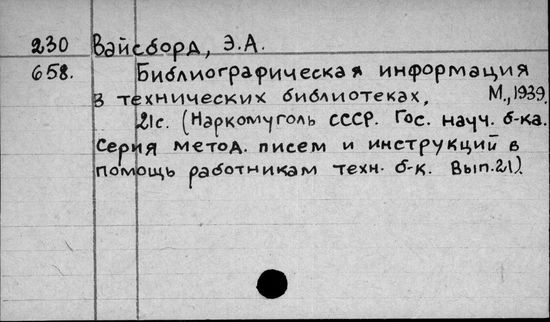 230 Вайсборд, Э.А.
658. Библиографическая информация
в технических библиотеках, М., 1939.
21с. (Наркомуголь СССР. Гос. науч. б-ка.
Серия метод. писем и инструкций в
помощь работникам техн. б-к. Вып.21).